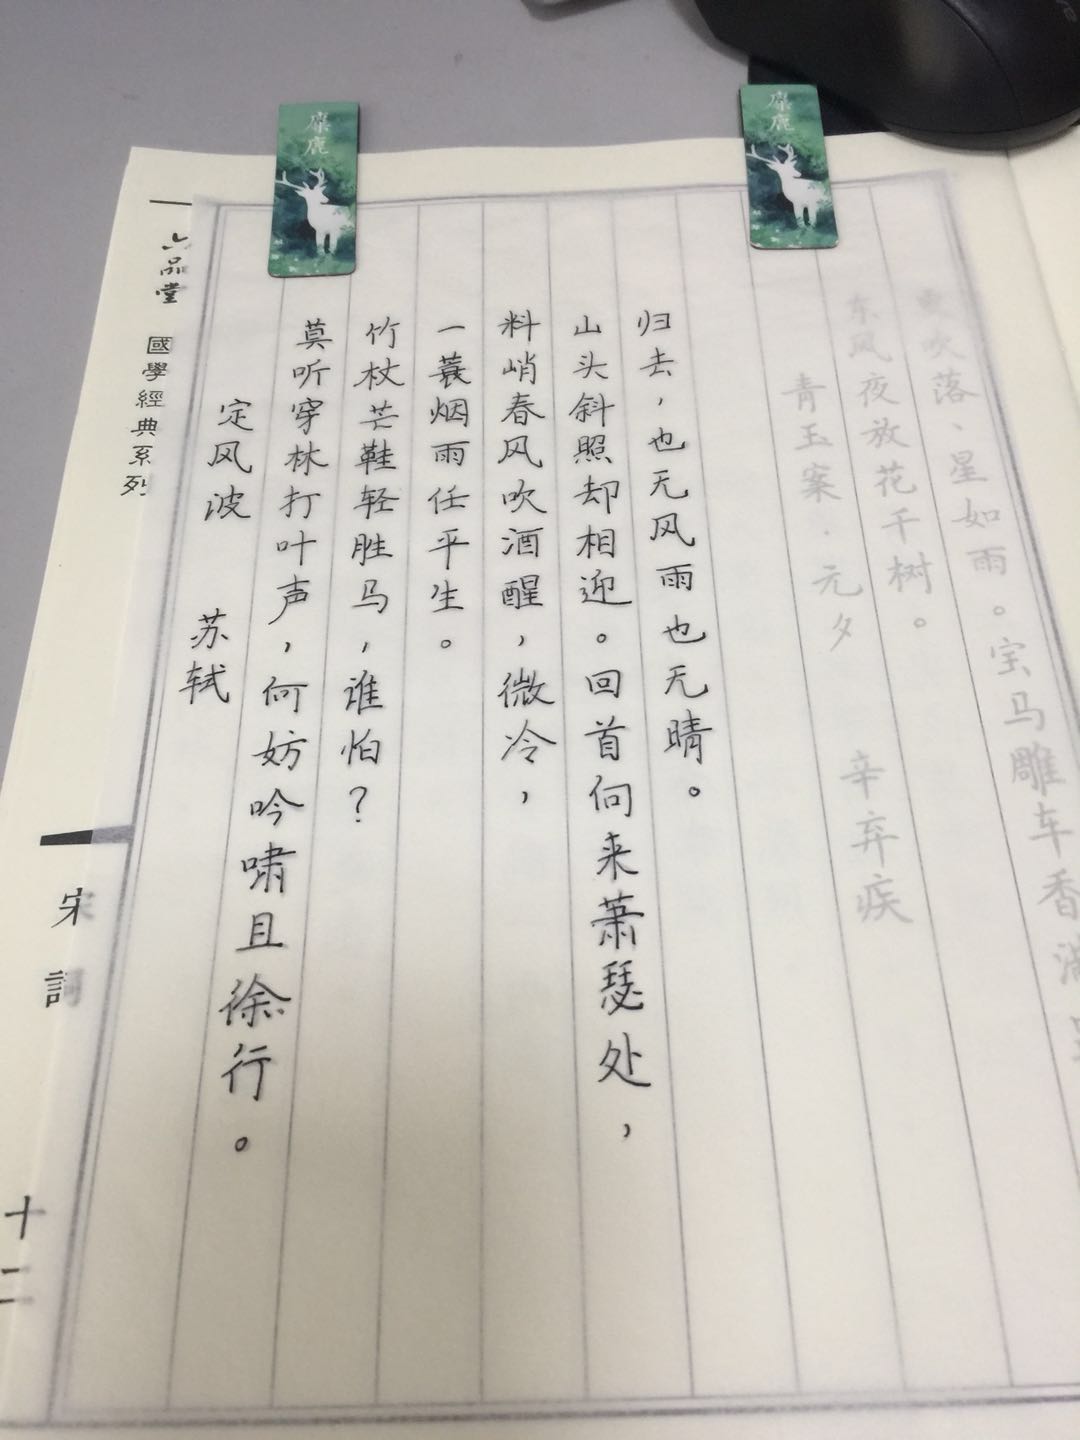 麋鹿
麋鹿
六品堂
國學經典系列
宋詞
十二
定风波 苏轼
莫听穿林打叶声，何妨吟啸且徐行。
竹杖芒鞋轻胜马，谁怕？
一蓑烟雨任平生。
料峭春风吹酒醒，微冷，
山头斜照却相迎。回首向来萧瑟处，
归去，也无风雨也无晴。
青玉案·元夕 辛弃疾
东风夜放花千树。
吹落、星如雨。宝马雕车香满